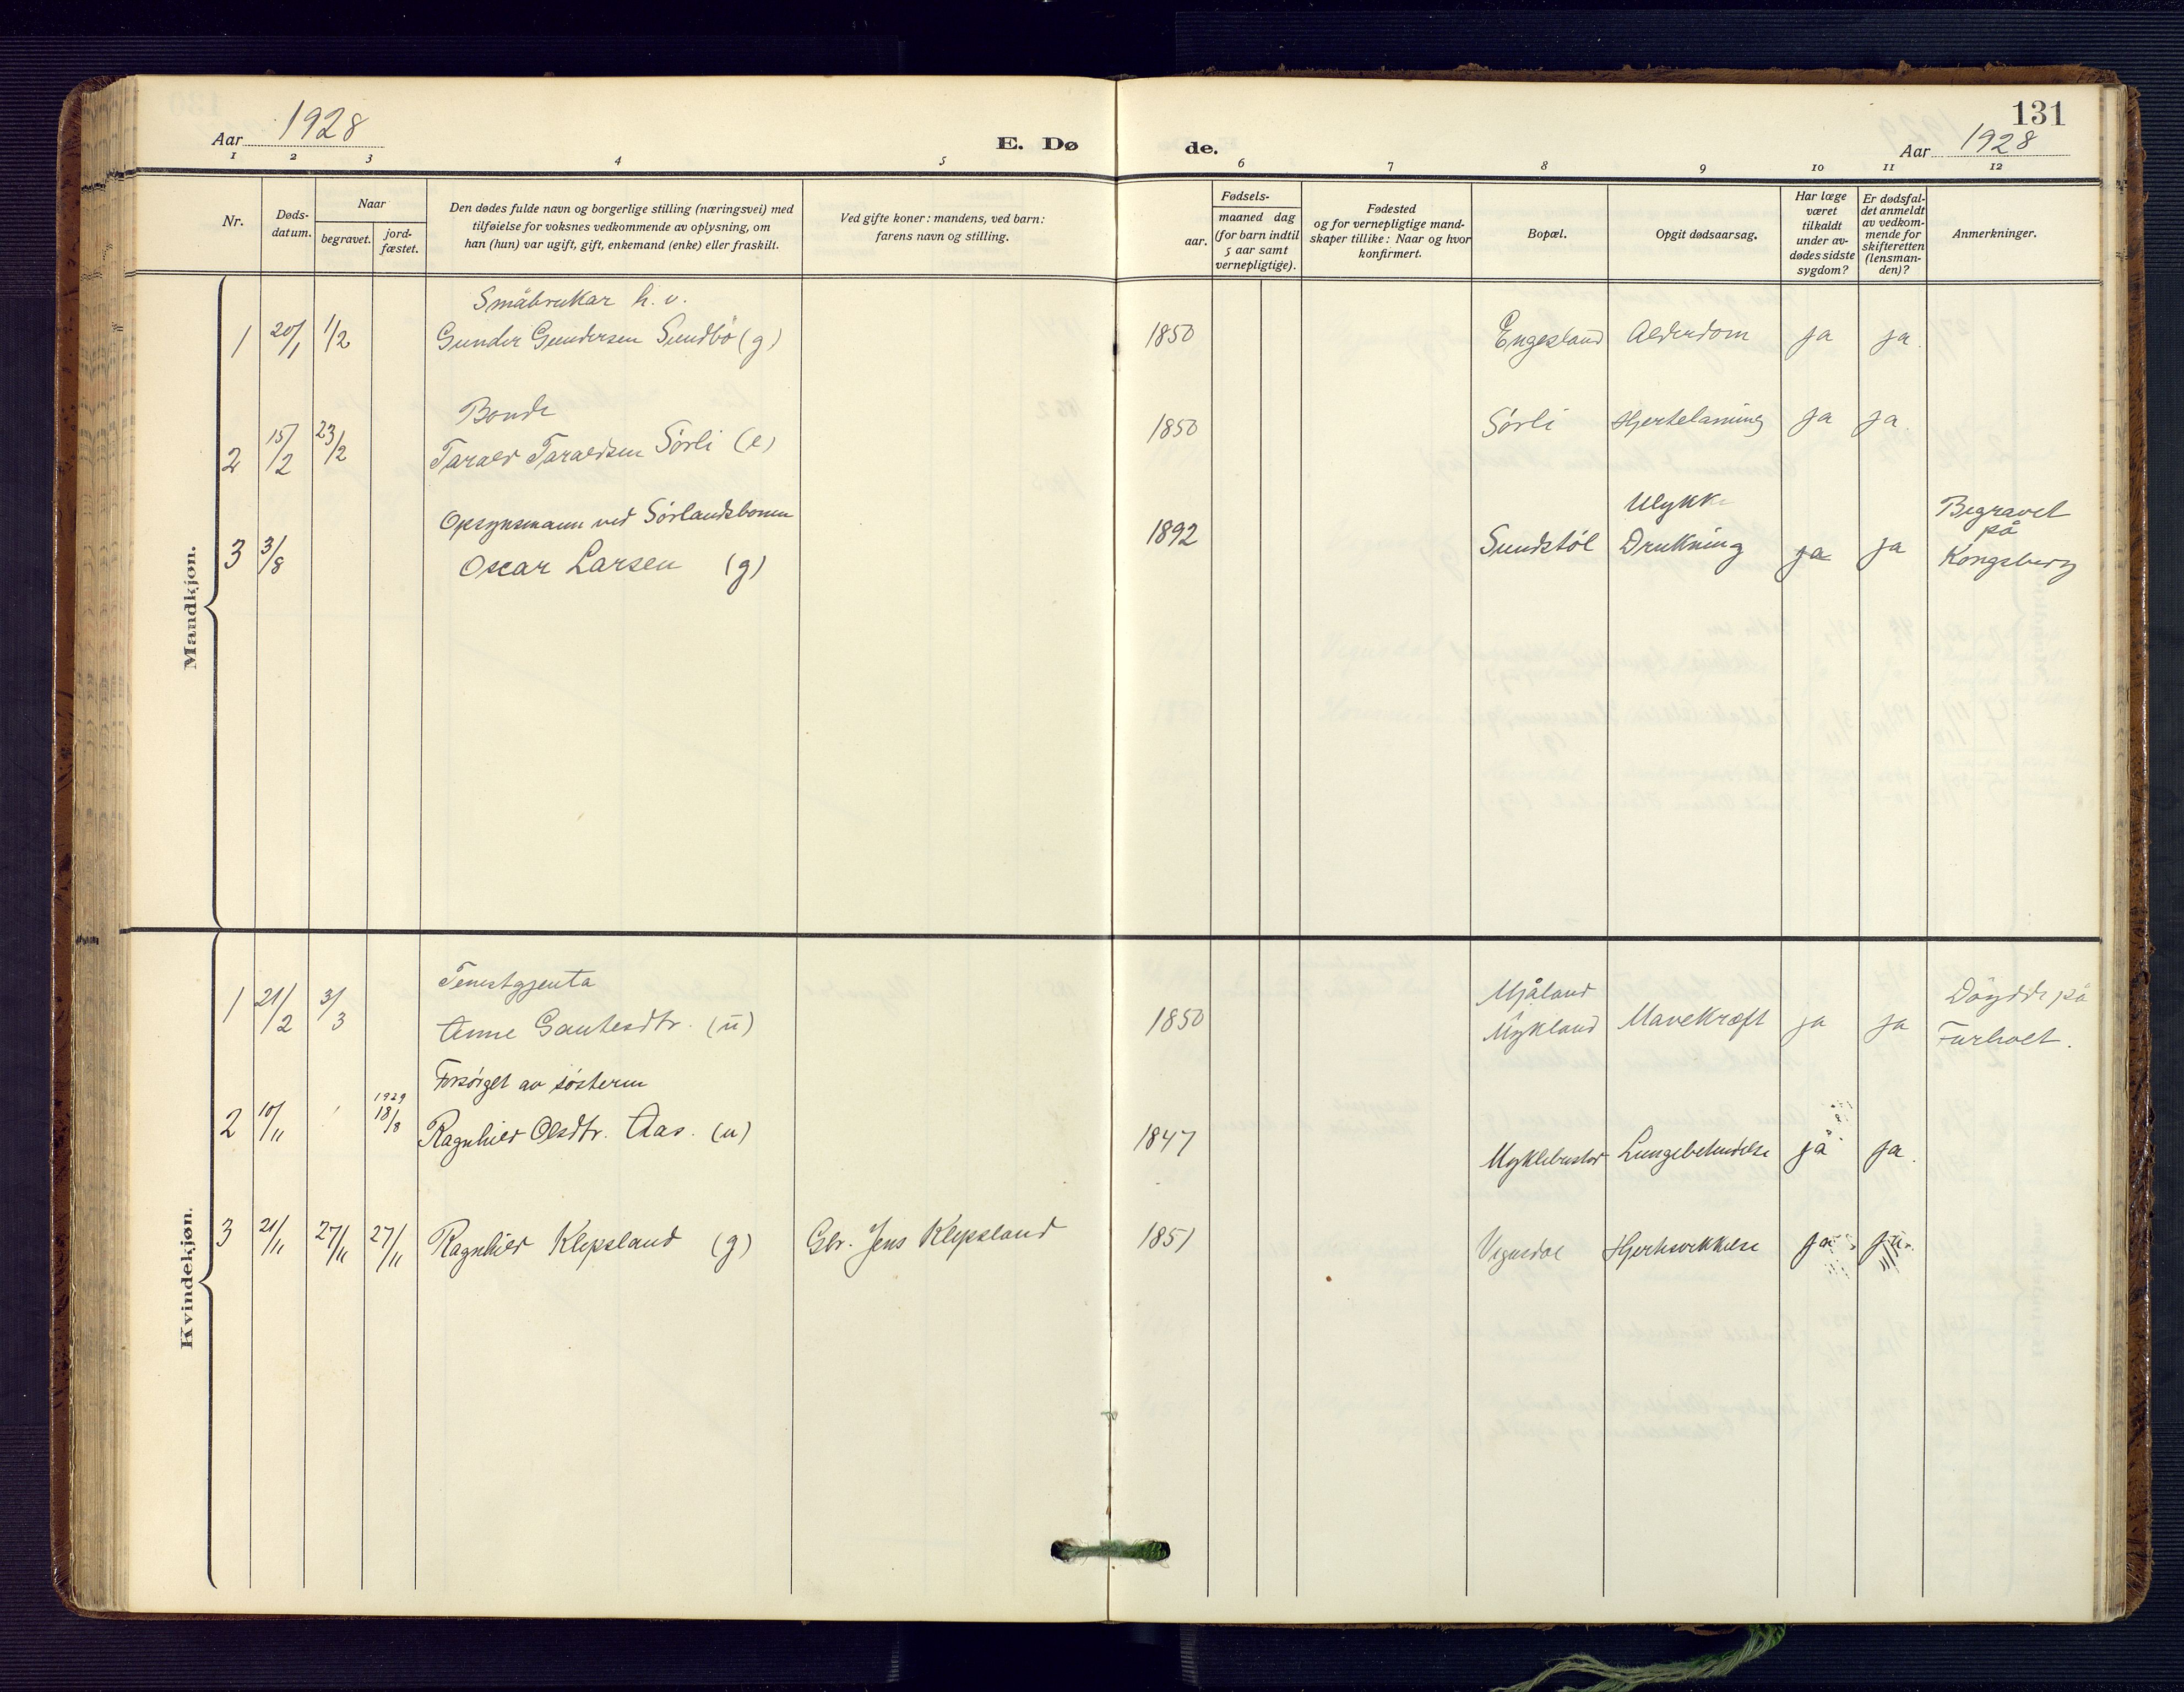 Aar 1928
E. Dø
de.
131
Aar 1928
1 2 3 4 5 6 7 8 9 10 11 12
Nr.
Døds-
datum.
Naar
begravet.
jord-
fæstet.
Den dødes fulde navn og borgerlige stilling (næringsvei) med
tilføielse for voksnes vedkommende av oplysning, om
han (hun) var ugift, gift, enkemand (enke) eller fraskilt.
Ved gifte koner: mandens, ved barn:
farens navn og stilling.
Fødsels-
aar.
maaned dag
(for barn indtil
5 aar samt
vernepligtige).
Fødested
og for vernepligtige mand-
skaper tillike: Naar og hvor
konfirmert.
Bopæl.
Opgit dødsaarsag.
Har læge
været
tilkaldt
under av-
dødes sidste
sygdom?
Er dødsfal-
det anmeldt
av vedkom-
mende for
skifteretten
(lensman-
den)?
Anmerkninger.
Mandkjøn.
Småbrukar h. v.
1 20/1 1/2 Gunder Gundersen Sundbö (g) 1850 Engesland Alderdom ja ja.
Bonde
2 15/2 23/2 Tarald Taraldsen Sörli (e) 1850 Sörli Hjertelamning ja ja.
Opsynsmann ved Sörlandsbanen
3 3/8 Oscar Larsen (g) 1892 Sundstöl Ulykke
Drukning ja ja Begravet
på
Kongsberg
Kvindekjøn.
Tenestgjenta
1 21/2 3/3 Anne Gautesdtr. (u) 1850 Mjåland
Mykland Mavekræft ja ja Döydde på
Furholt.
Forsörget av sösteren
2 10/11 1929
18/8 Ragnhild Olsdtr. Aas. (u) 1847 Myklebustad Lungebetendelse ja ja.
3 21/11 27/11 27/11 Ragnhild Klepsland (g) Gbr. Jens Klepsland 1851 Vegusdal Hjertesvekkelse ja ja